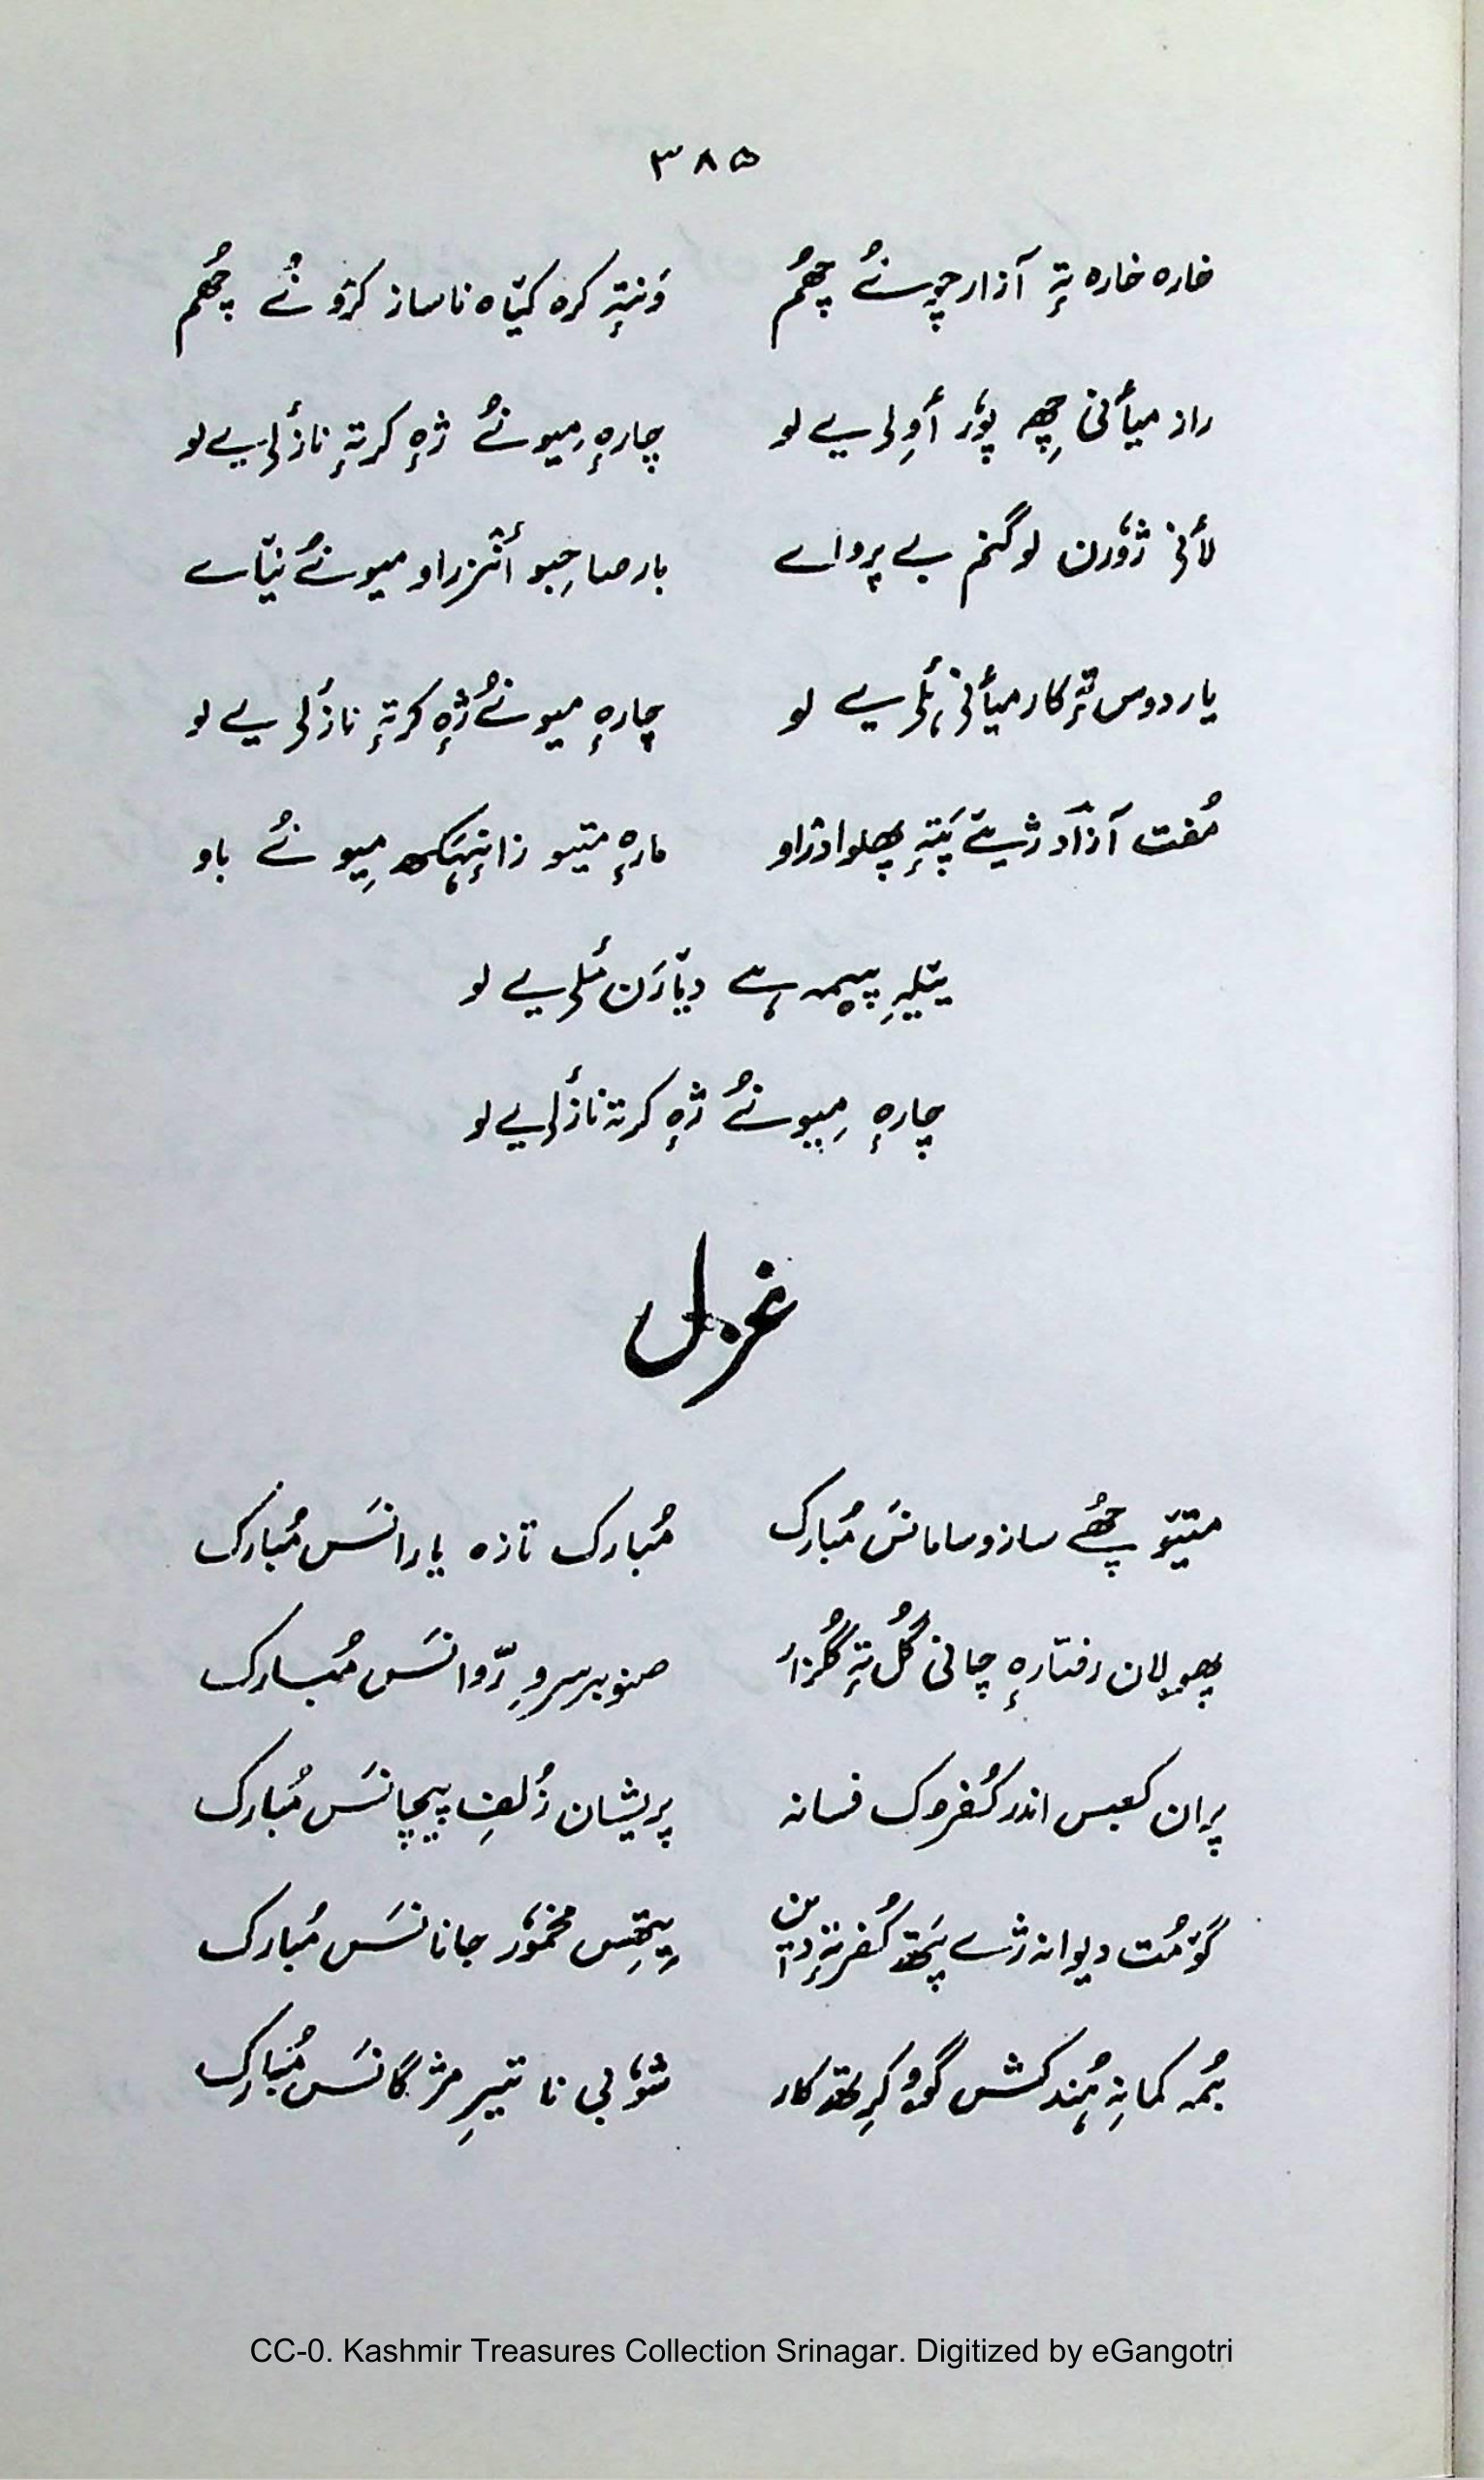 ۳۸۵
خارہ خارہ تہٕ آزار چہٕ نےٚ چھُم    وَنتہٕ کرہ کیٛاہ ناساز کرٛو نےٚ چھُم
راز میأنی چھِہ پوٗر أوِلی یے لو    چارہٕ میو نُے ژہٕ کرتہٕ نازٔلی یے لو
لأنی ژوٗرن لوگنم بے پرواے    بار صاحِبو أنٛزراو میونُے نیٛاے
یار دوس تہٕ کار میأنی ۂلی یے لو    چارہٕ میونُے ژہٕ کرتہٕ نازٔلی یے لو
مُفت آزاد ژیےٚ پَتہٕ پھلوا دراو    مارہٕ متیو زانہٕہَکھ میو نُے باو
ییٚلہِ پیمہ ہے دیٛارَن مٔلی یے لو
چارہٕ میونُے ژہٕ کرتہ نازٔلی یے لو
غزل
متیَو چھُے ساز و سامانَس مُبارک    مُبارک تازہ یارانَس مُبارک
پھولان رفتارہٕ چانی گُل تہٕ گُلزار    صنوبر سروِ رّوانَس مُبارک
پران کعبس اندر کُفرک فسانہ    پریشان زُلفِ پیچانَس مُبارک
گومُت دیوانہ ژے پَتھ کُفر تہٕ دین    یِتھِس مخموٗر جانانَس مُبارک
بُمہ کمانہِ ہُند کشش گوو کٔرِتھ کار    شوٗبی نا تیرِ مژگانَس مُبارک
CC-0. Kashmir Treasures Collection Srinagar. Digitized by eGangotri